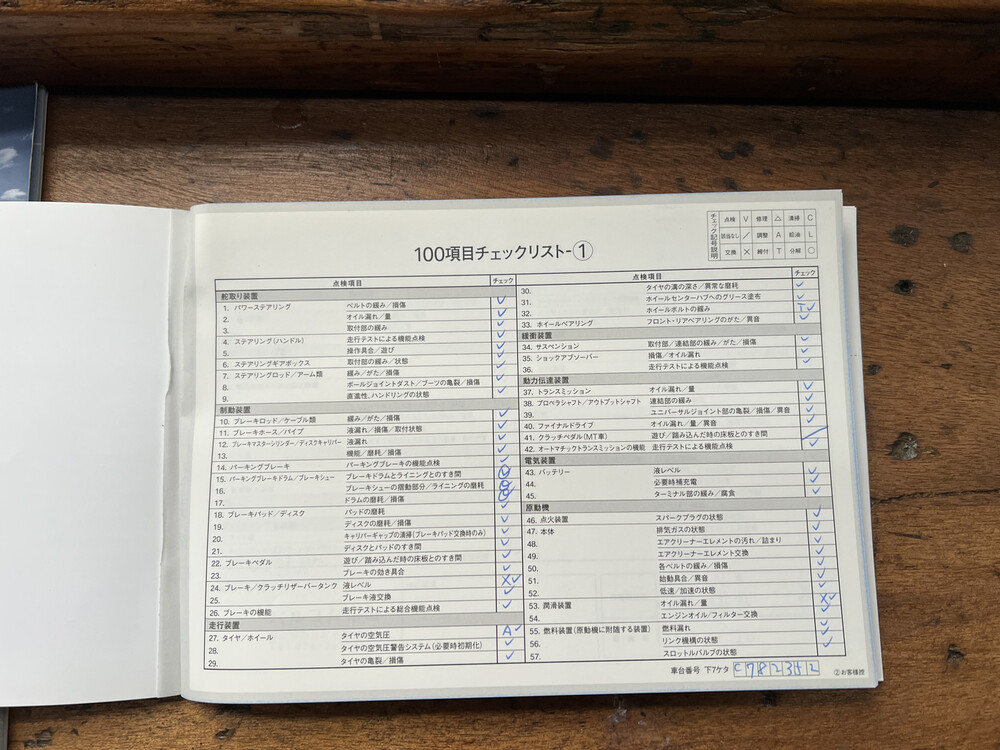 チェック記号説明
点検 V 修理 △ 清掃 C
該当なし / 調整 A 給油 L
交換 × 締付 T 分解 ○
100項目チェックリスト-①
点検項目 チェック
舵取り装置
1. パワーステアリング ベルトの緩み/損傷 ✓
2. オイル漏れ/量 ✓
3. 取付部の緩み ✓
4. ステアリング(ハンドル) 走行テストによる機能点検 ✓
5. 操作具合/遊び ✓
6. ステアリングギアボックス 取付部の緩み/状態 ✓
7. ステアリングロッド/アーム類 緩み/がた/損傷 ✓
8. ボールジョイントダスト/ブーツの亀裂/損傷 ✓
9. 直進性、ハンドリングの状態 ✓
制動装置
10. ブレーキロッド/ケーブル類 緩み/がた/損傷 ✓
11. ブレーキホース/パイプ 液漏れ/損傷/取付状態 ✓
12. ブレーキマスターシリンダー/ディスクキャリパー 液漏れ ✓
13. 機能/磨耗/損傷 ✓
14. パーキングブレーキ パーキングブレーキの機能点検 ✓
15. パーキングブレーキドラム/ブレーキシュー ブレーキドラムとライニングとのすき間
16. ブレーキシューの摺動部分/ライニングの磨耗
17. ドラムの磨耗/損傷
18. ブレーキパッド/ディスク パッドの磨耗 ✓
19. ディスクの磨耗/損傷 ✓
20. キャリパーギャップの清掃(ブレーキパッド交換時のみ) ✓
21. ディスクとパッドのすき間 ✓
22. ブレーキペダル 遊び/踏み込んだ時の床板とのすき間 ✓
23. ブレーキの効き具合 ✓
24. ブレーキ/クラッチリザーバータンク 液レベル ✓
25. ブレーキ液交換 X✓
26. ブレーキの機能 走行テストによる総合機能点検 ✓
走行装置
27. タイヤ/ホイール タイヤの空気圧 A✓
28. タイヤの空気圧警告システム(必要時初期化) ✓
29. タイヤの亀裂/損傷 ✓
点検項目 チェック
30. タイヤの溝の深さ/異常な磨耗 ✓
31. ホイールセンターハブへのグリース塗布 ✓
32. ホイールボルトの緩み T✓
33. ホイールベアリング フロント・リアベアリングのがた/異音 ✓
緩衝装置
34. サスペンション 取付部/連結部の緩み/がた/損傷 ✓
35. ショックアブソーバー 損傷/オイル漏れ ✓
36. 走行テストによる機能点検 ✓
動力伝達装置
37. トランスミッション オイル漏れ/量 ✓
38. プロペラシャフト/アウトプットシャフト 連結部の緩み ✓
39. ユニバーサルジョイント部の亀裂/損傷/異音 ✓
40. ファイナルドライブ オイル漏れ/量/異音 ✓
41. クラッチペダル(MT車) 遊び/踏み込んだ時の床板とのすき間 \
42. オートマチックトランスミッションの機能 走行テストによる機能点検 ✓
電気装置
43. バッテリー 液レベル ✓
44. 必要時補充電 ✓
45. ターミナル部の緩み/腐食 ✓
原動機
46. 点火装置 スパークプラグの状態 ✓
47. 本体 排気ガスの状態 ✓
48. エアクリーナーエレメントの汚れ/詰まり ✓
49. エアクリーナーエレメント交換 ✓
50. 各ベルトの緩み/損傷 ✓
51. 始動具合/異音 ✓
52. 低速/加速の状態 ✓
53. 潤滑装置 オイル漏れ/量 ✓
54. エンジンオイル/フィルター交換 X✓
55. 燃料装置(原動機に附随する装置) 燃料漏れ ✓
56. リンク機構の状態 ✓
57. スロットルバルブの状態 ✓
車台番号 下7ケタ C782352
②お客様控